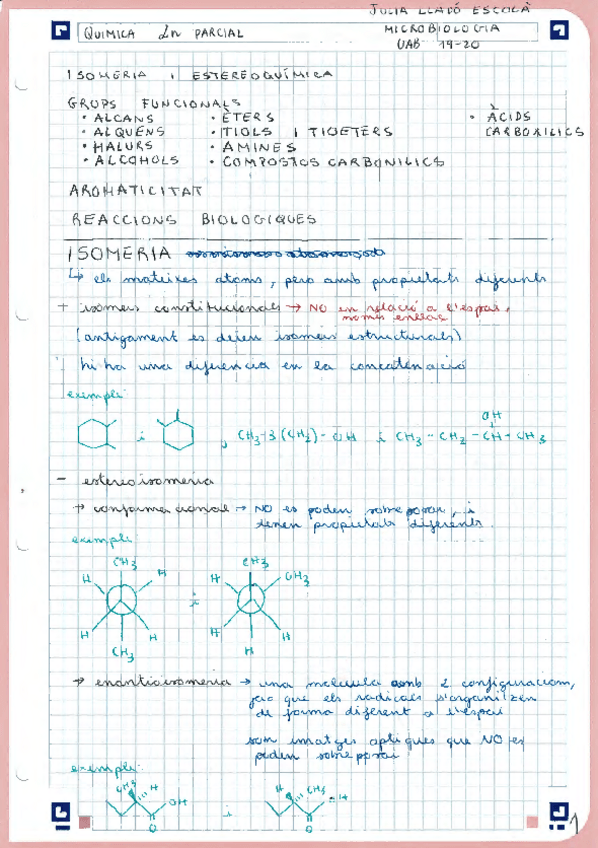 JULIA LLADÓ ESCOLÀ
QUIMICA 2n PARCIAL
MICROBIOLOGIA
UAB 19-20
ISOMERIA I ESTEREOQUÍMICA
GRUPS FUNCIONALS
• ALCANS • ÈTERS • ÀCIDS
• ALQUENS • TIOLS I TIOETERS CARBOXILICS
• HALURS • AMINES
• ALCOHOLS • COMPOSTOS CARBONILICS
AROMATICITAT
REACCIONS BIOLOGIQUES
ISOMERIA
↳ els mateixos atoms, pero amb propietats diferents
+ isomers constitucionals → NO en relació a l'espai,
només enllaç
(antigament es deien isomers estructurals)
hi ha una diferencia en la concatenació
exemple:
i , CH3-3(CH2)-OH i CH3-CH2-CH-CH3
OH
- estereoisomeria
→ conformacional → NO es poden sobreposar, i
tenen propietats diferents.
exemple:
CH3 CH3
H H H CH3
i
H H H H
CH3 H
→ enantioisomeria → una molecula amb 2 configuracions,
ja que els radicals s'organitzen
de forma diferent a l'espai
son imatges optiques que NO es
poden sobreposar
exemple:
CH3 H H CH3
OH i OH
O O
1